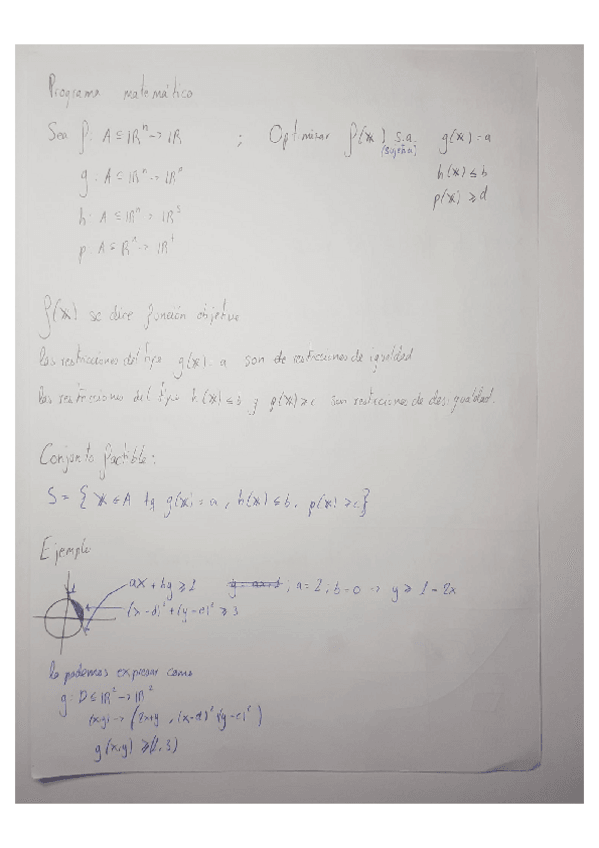 Programa matemático
Sea f: A ⊆ ℝⁿ → ℝ ; Optimizar f(x) s.a. g(x) = a
(sujeto a)
g: A ⊆ ℝⁿ → ℝᵐ h(x) ≤ b
h: A ⊆ ℝⁿ → ℝˢ p(x) ≥ d
p: A ⊆ ℝⁿ → ℝᵗ
f(x) se dice función objetivo
las restricciones del tipo g(x) = a son de restricciones de igualdad
las restricciones del tipo h(x) ≤ b y g(x) ≥ c son restricciones de desigualdad.
Conjunto factible:
S = { x ∈ A tq g(x) = a, h(x) ≤ b, p(x) ≥ c }
Ejemplo
ax + by ≥ 1 ; a = 2; b = 0 → y ≥ 1 - 2x
(x-d)² + (y-e)² ≥ 3
lo podemos expresar como
g: D ⊆ ℝ² → ℝ²
(x,y) → (2x+y, (x-d)² + (y-e)²)
g(x,y) ≥ (1, 3)